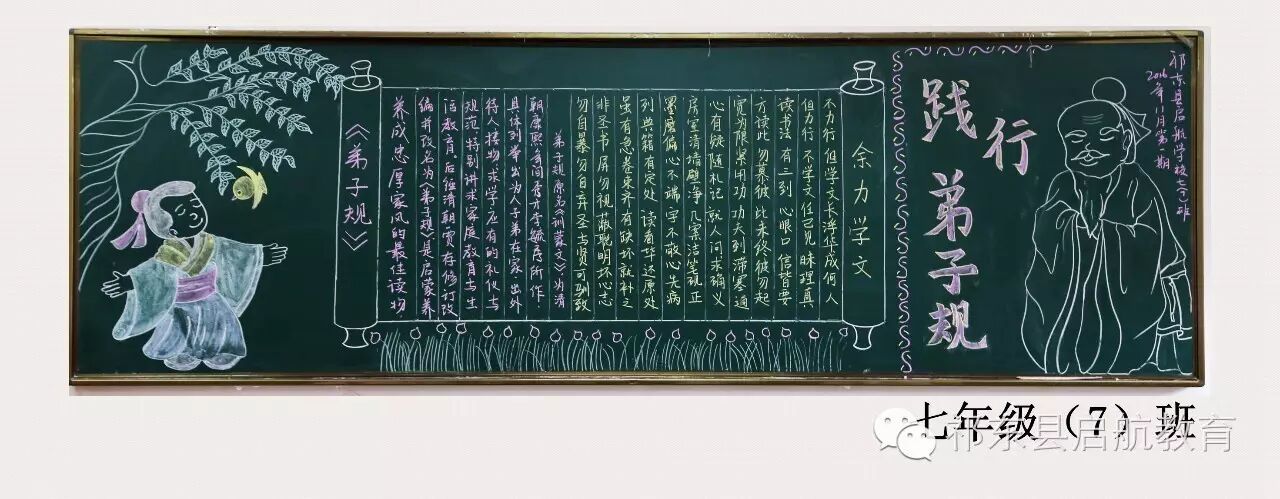 祁东县启航学校七(7)班
2016年11月第一期
践行
弟子规
余力学文
不力行 但学文长浮华成何人
但力行 不学文 任己见 昧理真
读书法 有三到 心眼口 信皆要
方读此 勿慕彼 此未终彼勿起
宽为限 紧用功 功夫到 滞塞通
心有疑 随札记 就人问求确义
房室清墙壁净 几案洁笔砚正
墨磨偏 心不端 字不敬心先病
列典籍有定处 读看毕还原处
虽有急卷束齐有缺坏就补之
非圣书屏勿视 蔽聪明坏心志
勿自暴勿自弃圣与贤可驯致
弟子规原名《训蒙文》,为清
朝康熙年间秀才李毓秀所作,
具体列举出为人子弟在家、出外
待人接物、求学应有的礼仪与
规范,特别讲求家庭教育与生
活教育。后经清朝贾存修订改
编并改名为弟子规,是启蒙养
养成忠厚家风的最佳读物
《弟子规》
七年级（7）班
祁东县启航教育